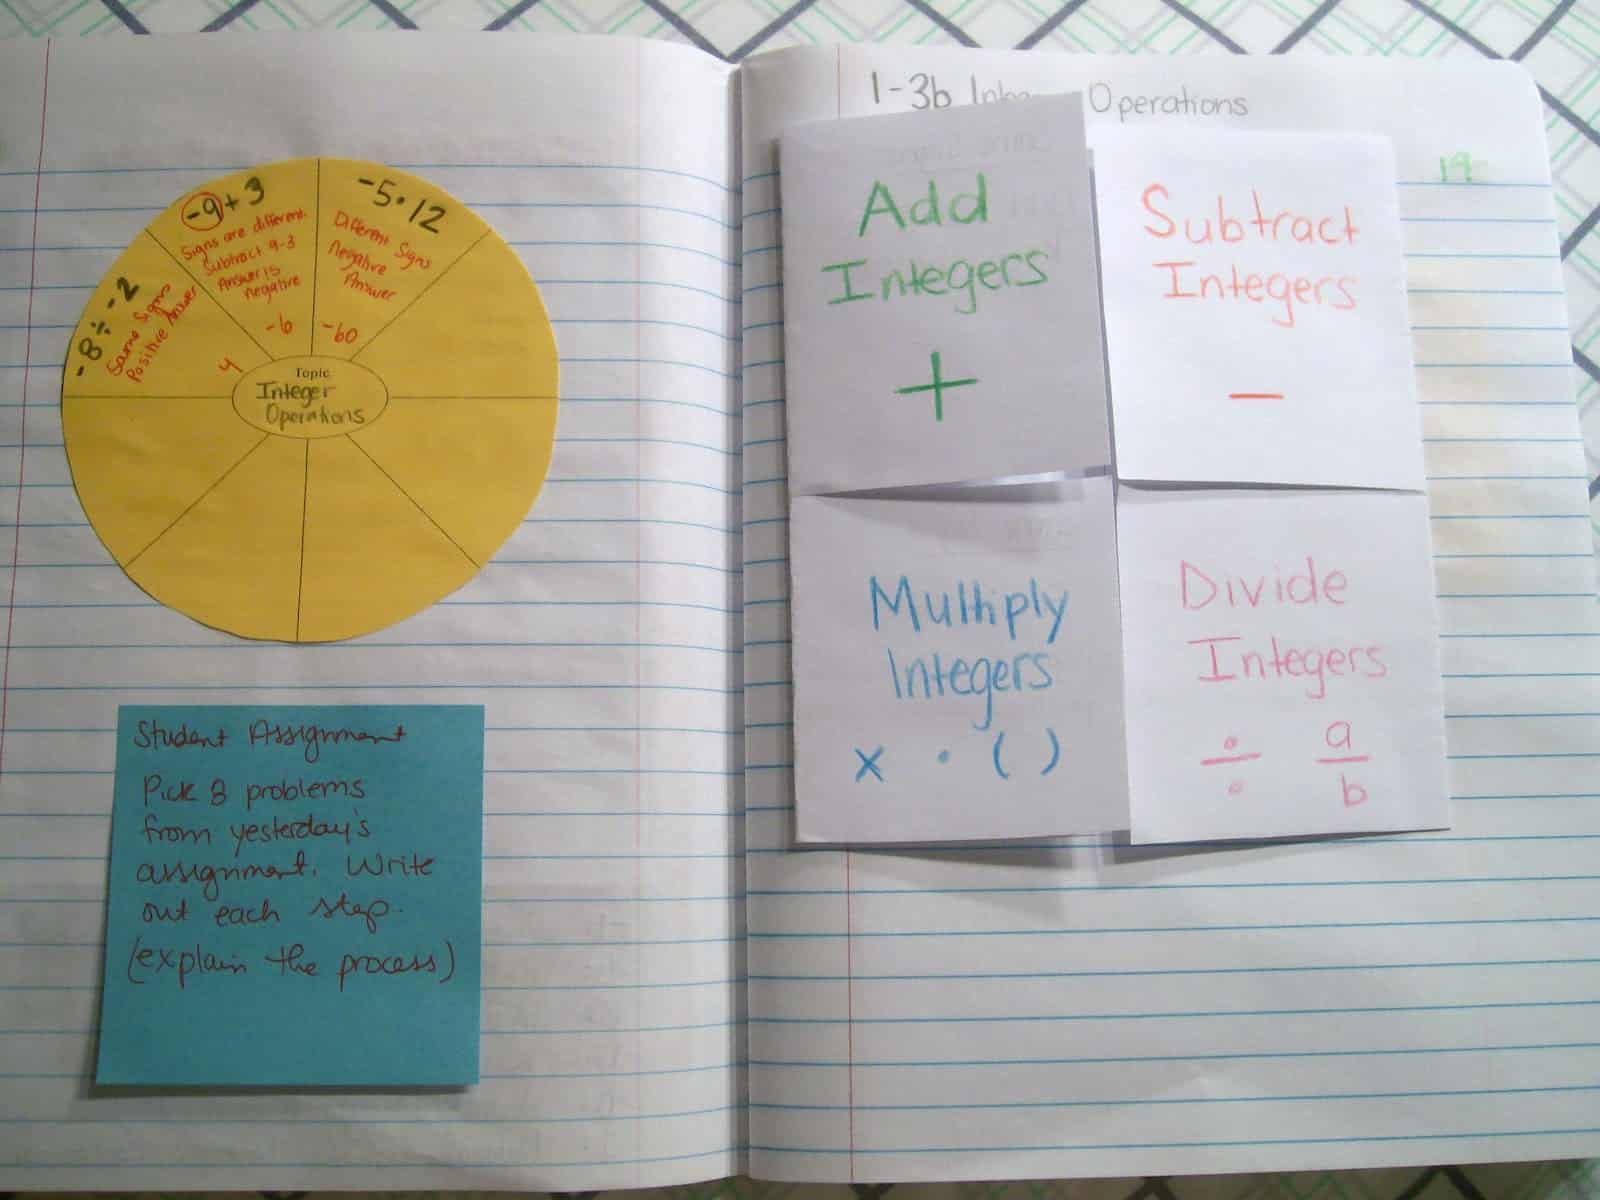 -9+3
Signs are different.
Subtract 9-3
Answer is
negative
-6
-5·12
Different Signs
Negative
Answer
-60
-8÷-2
Same Signs
Positive Answer
4
Topic
Integer
Operations
Student Assignment
Pick 8 problems
from yesterday's
assignment. Write
out each step.
(explain the process)
1-3b Operations
19
Add
Integers
+
Subtract
Integers
−
Multiply
Integers
x · ( )
Divide
Integers
÷ a/b